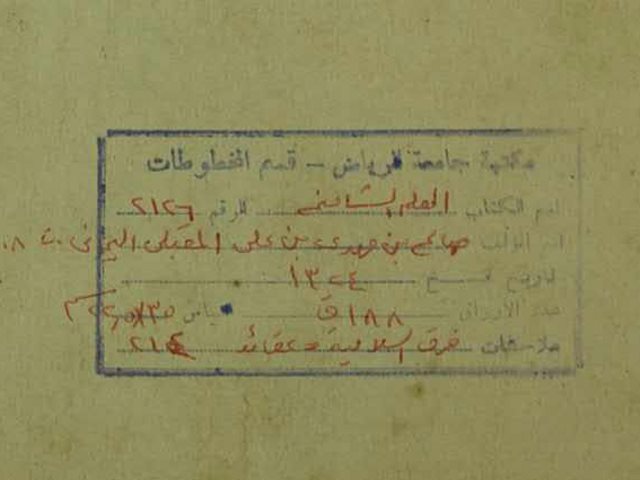 مكتبة جامعة الرياض - قسم المخطوطات
اسم الكتاب العلم الشامخ الرقم ٢١٢٦
اسم المؤلف صالح بن مهدي بن علي المقبلي اليماني ت ٠٨
تاريخ النسخ ١٣٠٤
عدد الأوراق ١٨٨ق
ملاحظات فرق اسلامية وعقائد